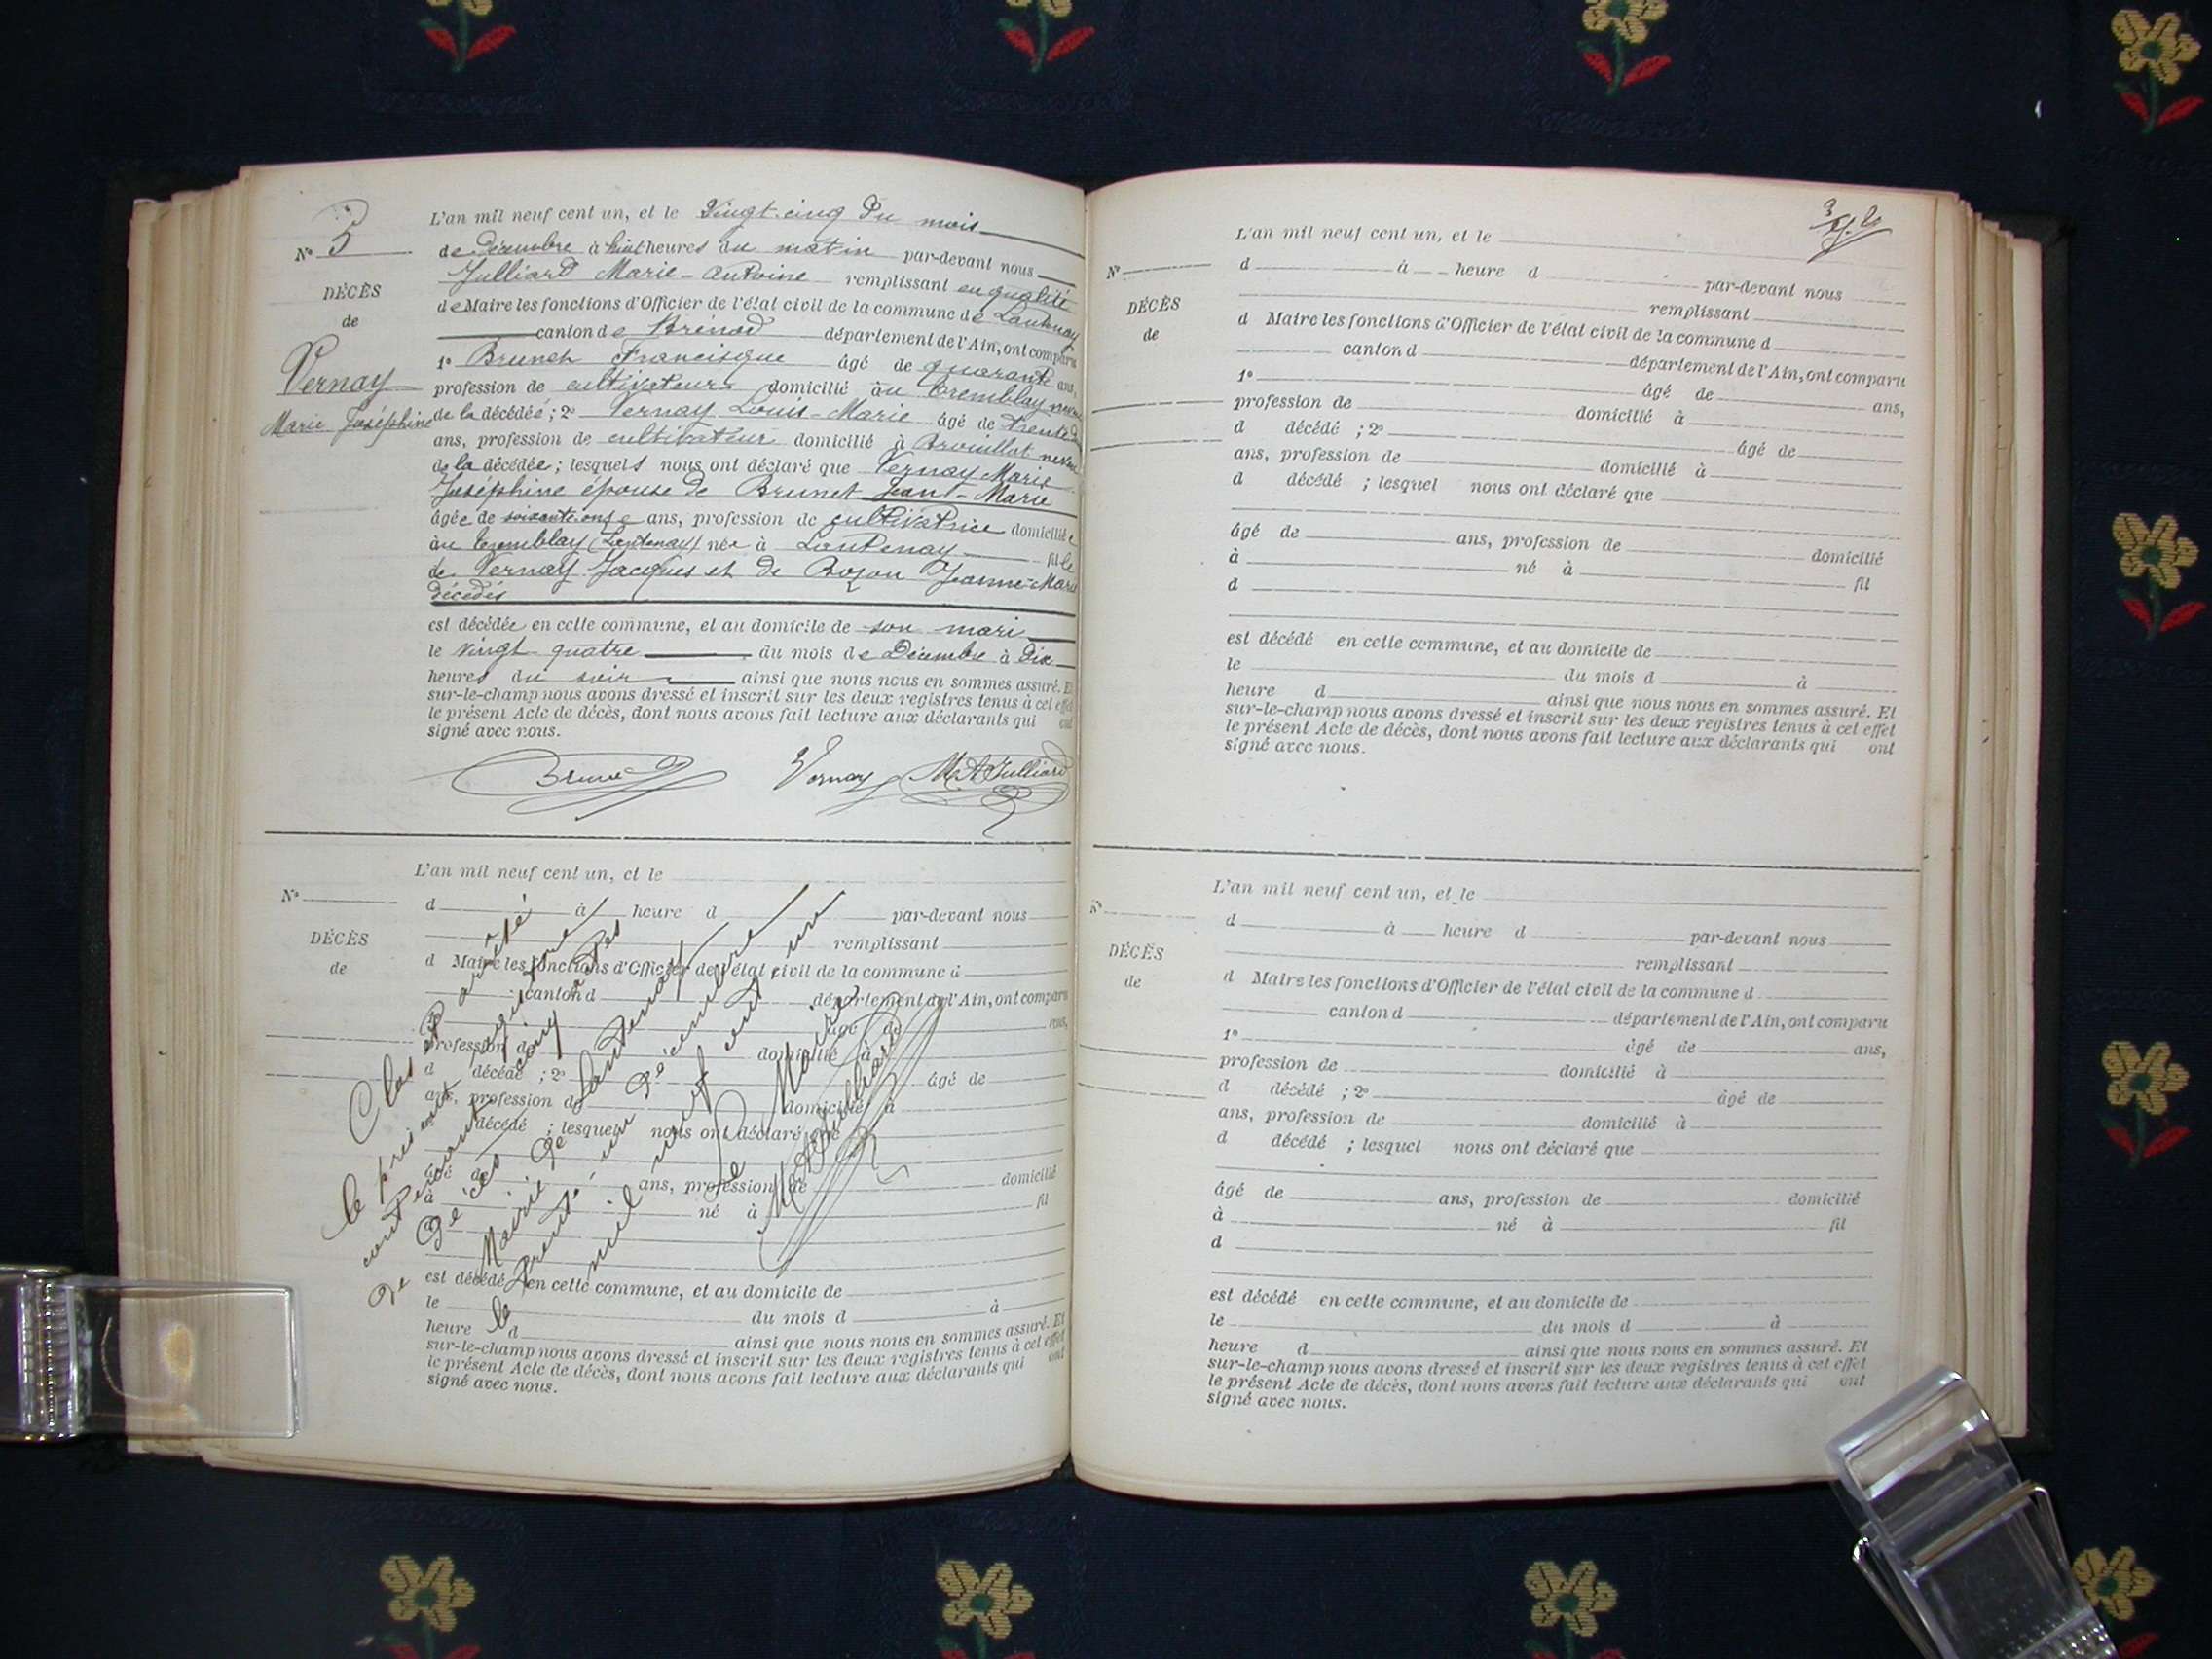 L'an mil neuf cent un, et le Vingt-cinq du mois
N° 5
de décembre à huit heures du matin par-devant nous
Julliard Marie-Antoine remplissant en qualité
DÉCÈS
de Maire les fonctions d'Officier de l'état civil de la commune de Lantenay
de
canton de Brénod département de l'Ain, ont comparu
1° Brunet Francisque âgé de quarante ans,
Vernay
profession de cultivateur domicilié au Tremblay neveu
Marie Joséphine
de la décédée; 2° Vernay Louis-Marie âgé de trente
ans, profession de cultivateur domicilié à Brouillat neveu
de la décédée; lesquels nous ont déclaré que Vernay Marie
Joséphine épouse de Brunet Jean-Marie
âgée de soixante onze ans, profession de cultivatrice domiciliée
au Tremblay (Lantenay) née à Lantenay fille
de Vernay Jacques et de Bozon Jeanne-Marie
décédés
est décédée en cette commune, et au domicile de son mari
le vingt quatre du mois de Décembre à dix
heures du soir ainsi que nous nous en sommes assuré. Et
sur-le-champ nous avons dressé et inscrit sur les deux registres tenus à cet effet
le présent Acte de décès, dont nous avons fait lecture aux déclarants qui ont
signé avec nous.
Brunet Vernay M A Julliard
L'an mil neuf cent un, et le
N°
d à heure d par-devant nous
remplissant
DÉCÈS
d Maire les fonctions d'Officier de l'état civil de la commune d
de
canton d département de l'Ain, ont comparu
âgé de ans,
profession de domicilié à
d décédé ; 2° âgé de
ans, profession de domicilié à
décédé ; lesquel nous ont déclaré que
âgé de ans, profession de domicilié
à né à fil
est décédé en cette commune, et au domicile de
le du mois d à
heure d ainsi que nous nous en sommes assuré. Et
sur-le-champ nous avons dressé et inscrit sur les deux registres tenus à cet effet
le présent Acte de décès, dont nous avons fait lecture aux déclarants qui ont
signé avec nous.
Clos et arrêté
le présent registre
contenant cinq actes
de Décès
Mairie de Lantenay
le trente un Décembre
mil neuf cent un
Le Maire
M A Julliard
L'an mil neuf cent un, et le
N°
d à heure d par-devant nous
remplissant
DÉCÈS
d Maire les fonctions d'Officier de l'état civil de la commune d
de
canton d département de l'Ain, ont comparu
1° âgé de ans,
profession de domicilié à
d décédé ; 2° âgé de
ans, profession de domicilié à
d décédé ; lesquel nous ont déclaré que
âgé de ans, profession de domicilié
à né à fil
d
est décédé en cette commune, et au domicile de
le du mois d à
heure d ainsi que nous nous en sommes assuré. Et
sur-le-champ nous avons dressé et inscrit sur les deux registres tenus à cet effet
le présent Acte de décès, dont nous avons fait lecture aux déclarants qui ont
signé avec nous.
L'an mil neuf cent un, et le
N°
d à heure d par-devant nous
remplissant
DÉCÈS
d Maire les fonctions d'Officier de l'état civil de la commune d
de
canton d département de l'Ain, ont comparu
1° âgé de ans,
profession de domicilié à
d décédé ; 2° âgé de
ans, profession de domicilié à
d décédé ; lesquel nous ont déclaré que
âgé de ans, profession de domicilié
à né à fil
d
est décédé en cette commune, et au domicile de
le du mois d à
heure d ainsi que nous nous en sommes assuré. Et
sur-le-champ nous avons dressé et inscrit sur les deux registres tenus à cet effet
le présent Acte de décès, dont nous avons fait lecture aux déclarants qui ont
signé avec nous.